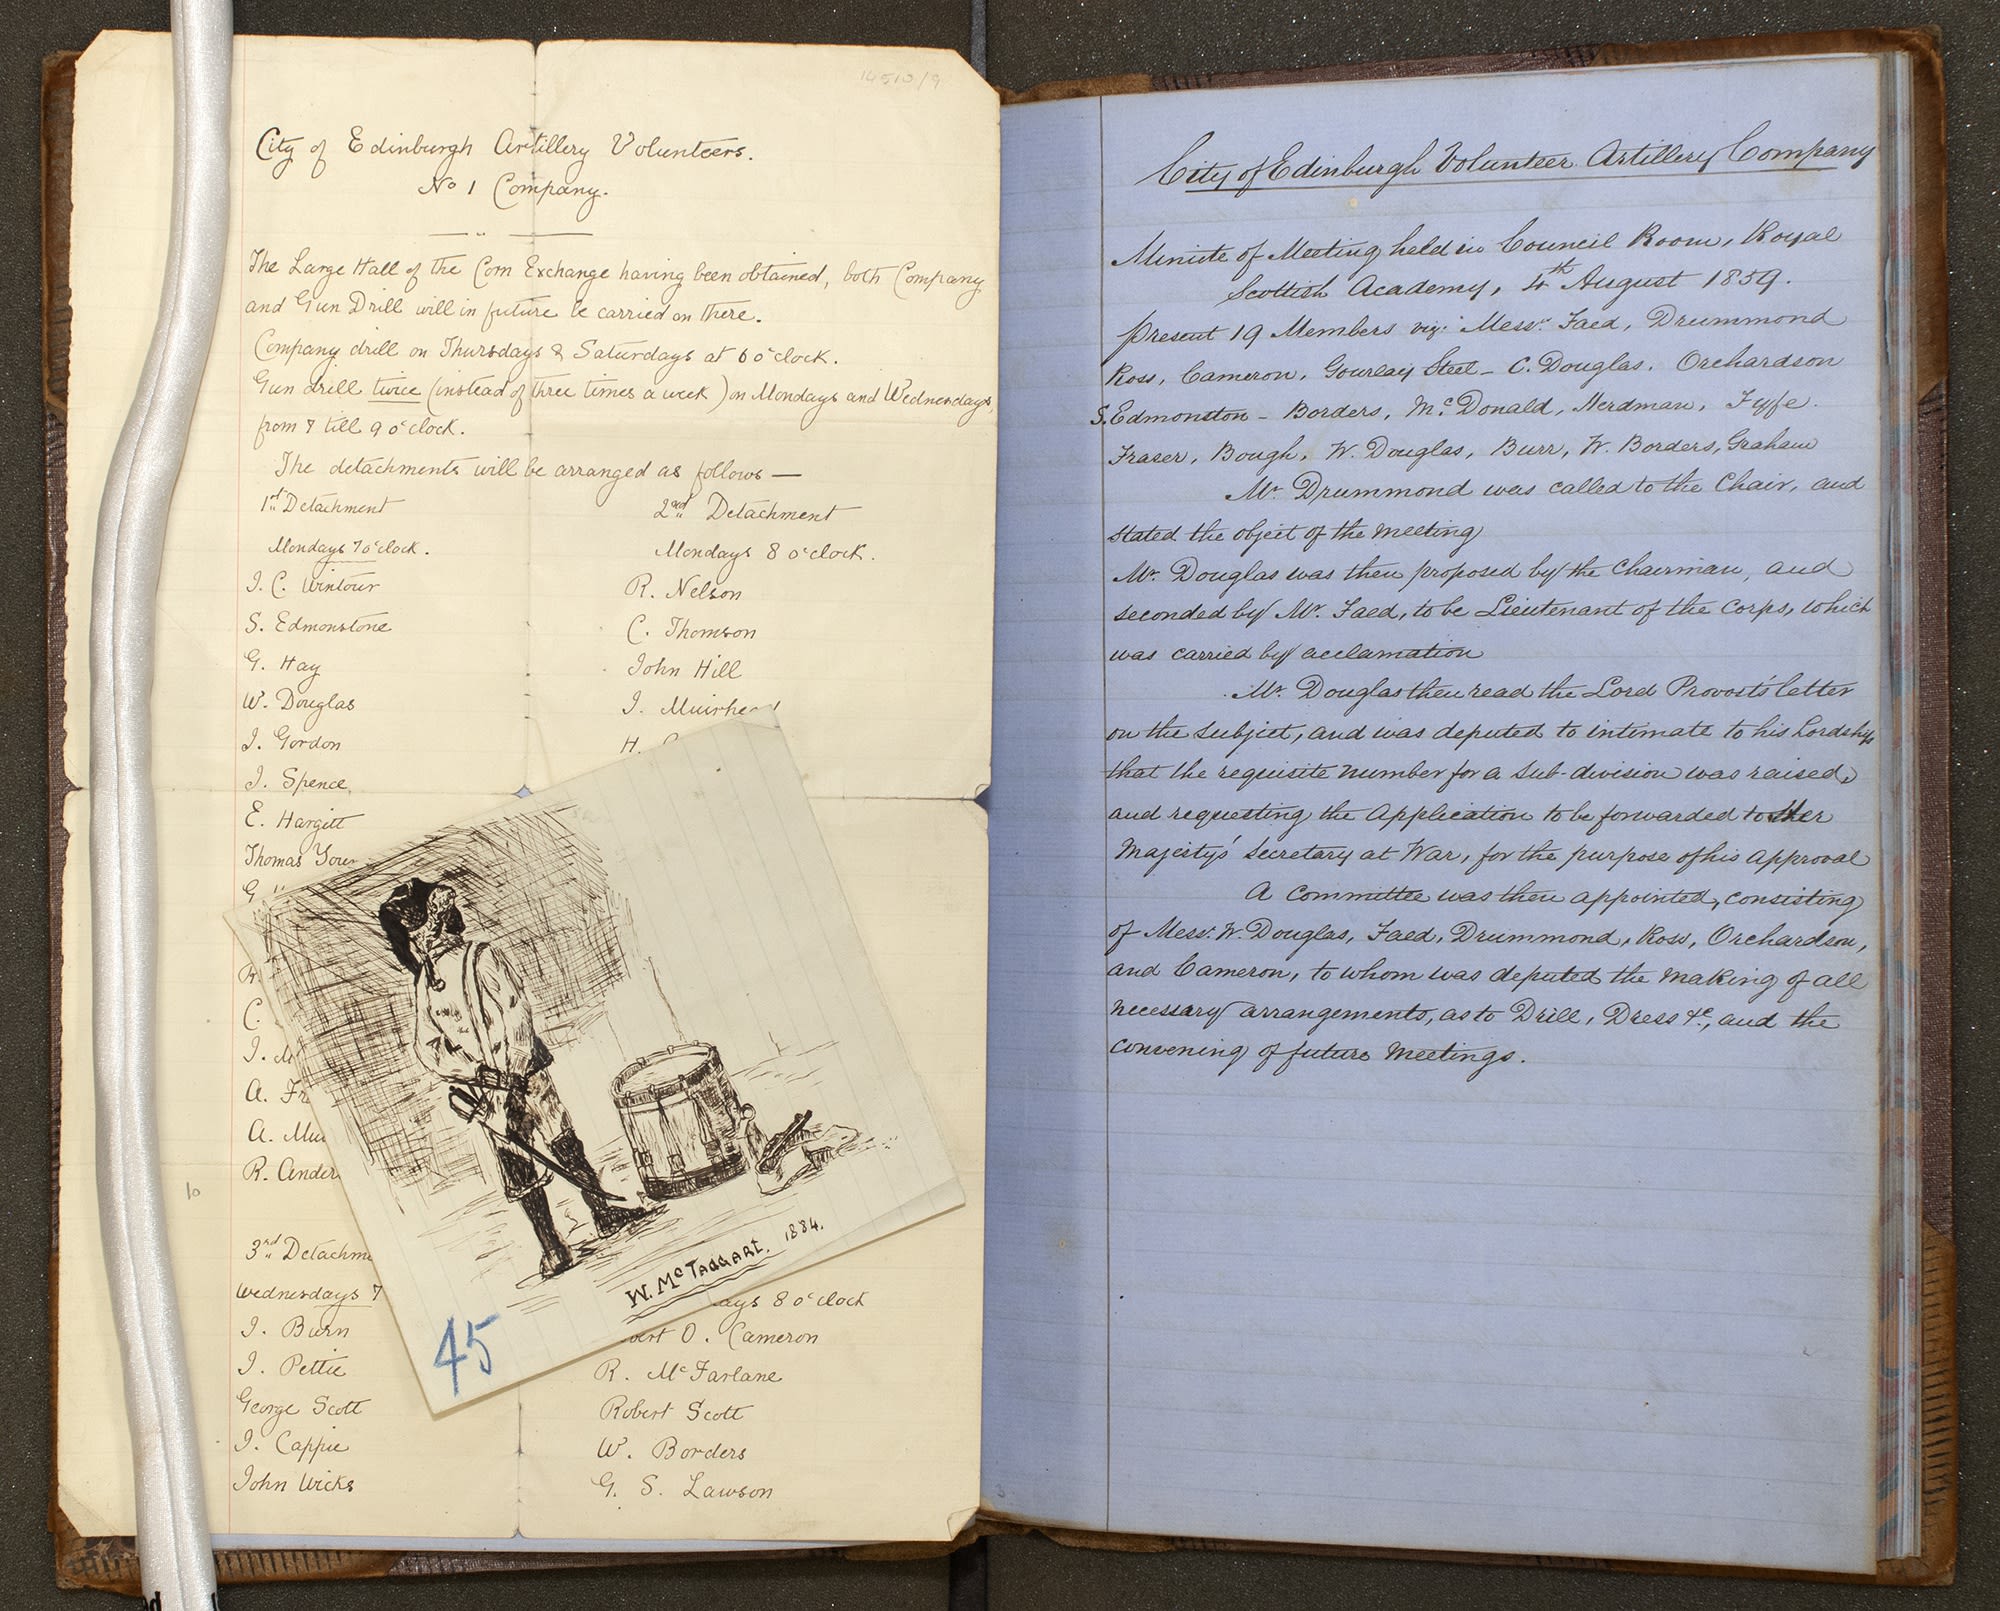 14510/9
City of Edinburgh Artillery Volunteers.
No 1 Company.
The Large Hall of the Corn Exchange having been obtained, both Company
and Gun Drill will in future be carried on there.
Company drill on Thursdays & Saturdays at 6 o'clock.
Gun drill twice (instead of three times a week) on Mondays and Wednesdays,
from 7 till 9 o'clock.
The detachments will be arranged as follows —
1st Detachment
Mondays 7 o'clock.
J. C. Wintour
S. Edmonstone
G. Hay
W. Douglas
J. Gordon
J. Spence
E. Hargitt
Thomas
G
R.
C.
J.
A.
A.
R.
2nd Detachment
Mondays 8 o'clock.
R. Nelson
C. Thomson
John Hill
J. Muirhead
H.
10
3rd
Wednesdays 7
J. Burn
J. Pettie
George Scott
J. Cappie
John Wicks
8 o'clock
O. Cameron
R. McFarlane
Robert Scott
W. Borders
G. S. Lawson
W. McTaggart. 1884.
45
City of Edinburgh Volunteer Artillery Company
Minute of Meeting held in Council Room, Royal
Scottish Academy, 4th August 1859.
Present 19 Members viz: Messrs Faed, Drummond
Ross, Cameron, Gourlay Steel – C. Douglas, Orchardson
S. Edmonston – Borders, McDonald, Herdman, Fyfe.
Fraser, Bough, W. Douglas, Burr, W. Borders, Graham
Mr. Drummond was called to the Chair, and
stated the object of the meeting
Mr. Douglas was then proposed by the Chairman, and
seconded by Mr. Faed, to be Lieutenant of the Corps, which
was carried by acclamation
Mr. Douglas then read the Lord Provost's letter
on the subject, and was deputed to intimate to his Lordship
that the requisite number for a Sub-division was raised,
and requesting the Application to be forwarded to Her
Majesty's Secretary at War, for the purpose of his approval
A Committee was then appointed, consisting
of Messrs W. Douglas, Faed, Drummond, Ross, Orchardson,
and Cameron, to whom was deputed the making of all
necessary arrangements, as to Drill, Dress &c, and the
convening of future Meetings.
3